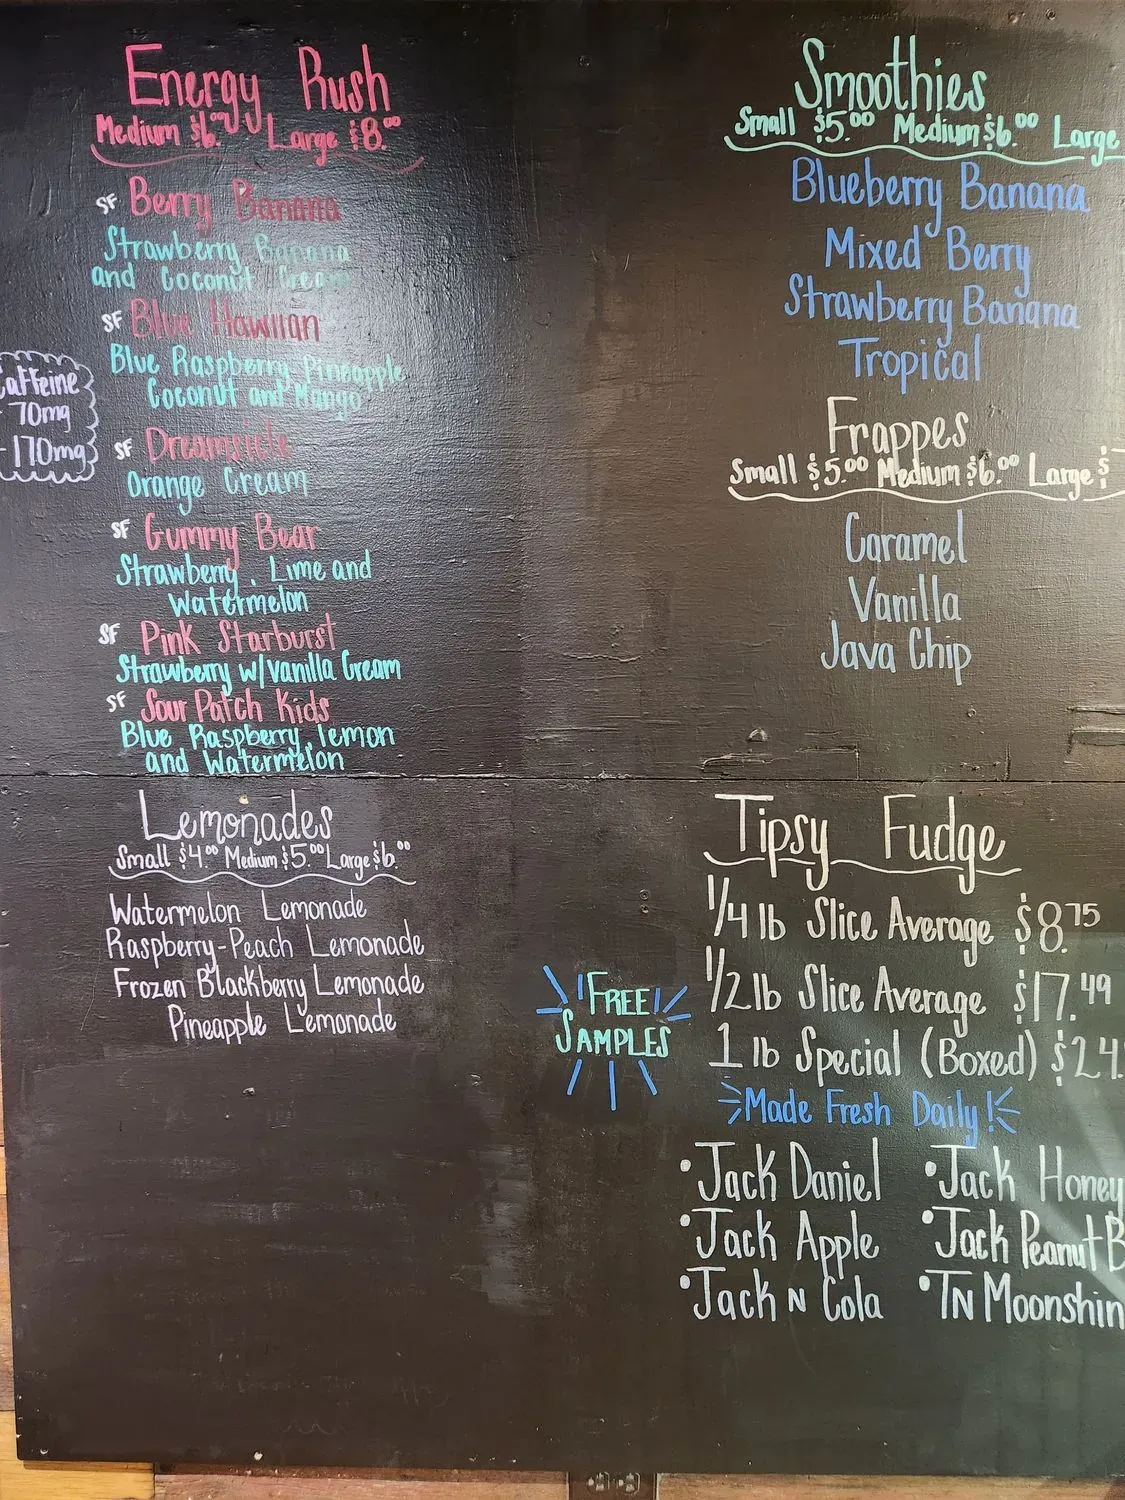 Energy Rush
Medium $6.00 Large $8.00
SF Berry Banana
Strawberry Banana
and Coconut Cream
SF Blue Hawiian
Blue Raspberry, Pineapple
Coconut and Mango
Caffeine
70mg
-170mg
SF Dreamsicle
Orange Cream
SF Gummy Bear
Strawberry, Lime and
Watermelon
SF Pink Starburst
Strawberry w/Vanilla Cream
SF Sour Patch Kids
Blue Raspberry, lemon
and Watermelon
Lemonades
Small $4.00 Medium $5.00 Large $6.00
Watermelon Lemonade
Raspberry-Peach Lemonade
Frozen Blackberry Lemonade
Pineapple Lemonade
Smoothies
Small $5.00 Medium $6.00 Large
Blueberry Banana
Mixed Berry
Strawberry Banana
Tropical
Frappes
Small $5.00 Medium $6.00 Large $
Caramel
Vanilla
Java Chip
Tipsy Fudge
1/4 lb Slice Average $8.75
1/2 lb Slice Average $17.49
1 lb Special (Boxed) $24.
FREE
SAMPLES
Made Fresh Daily!
• Jack Daniel • Jack Honey
• Jack Apple • Jack Peanut B
• Jack N Cola • TN Moonshin